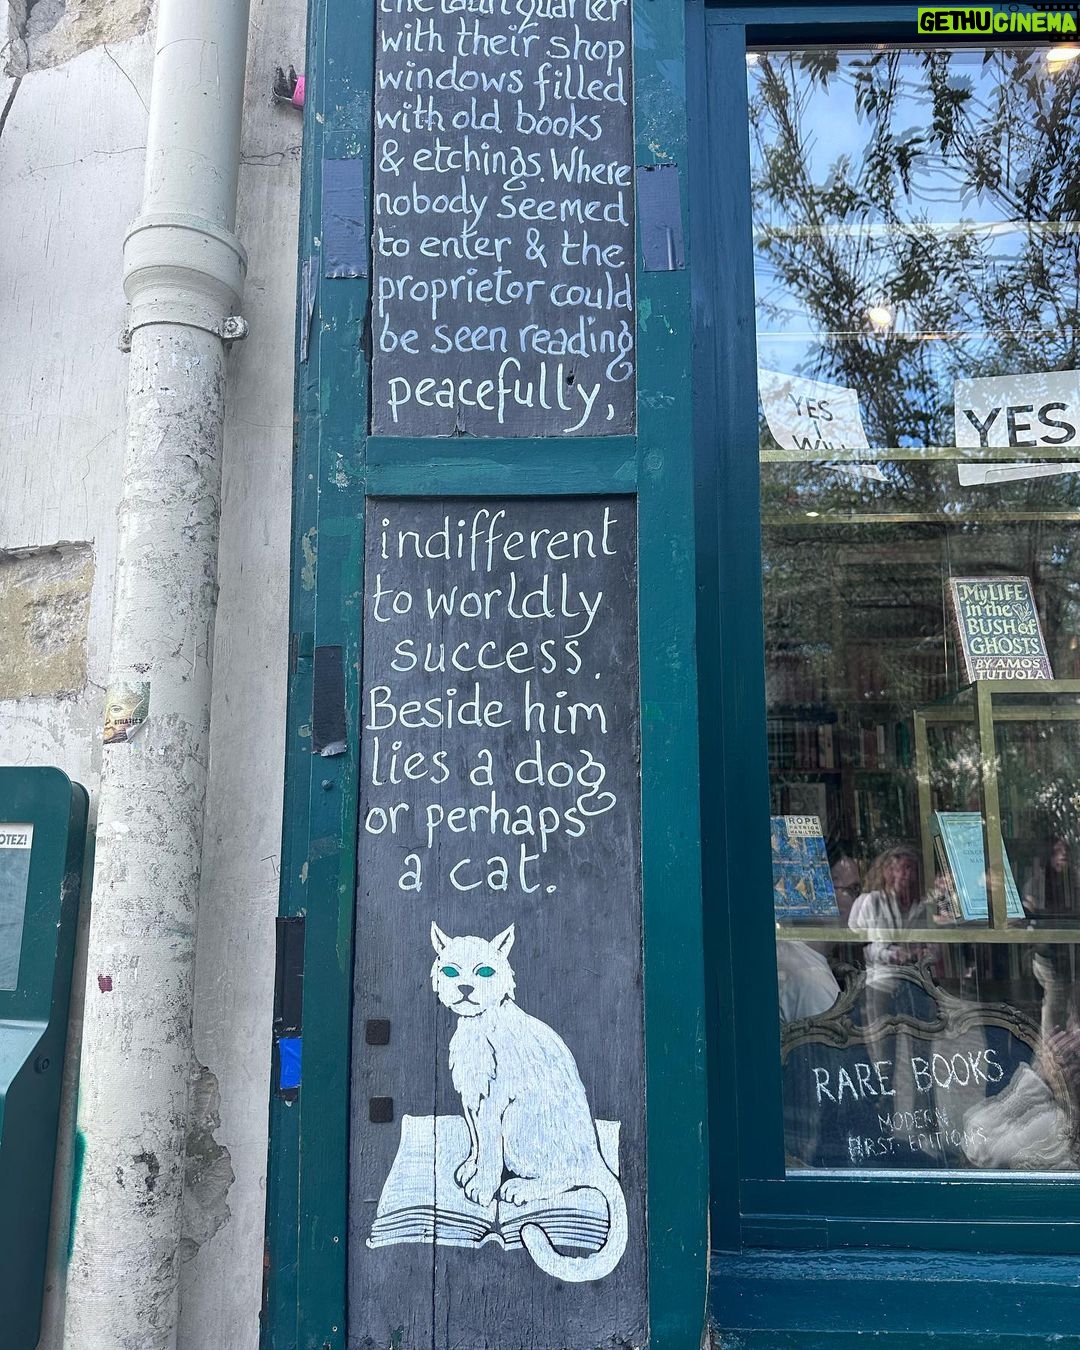 GETHUCINEMA
the latin quarter
with their shop
windows filled
with old books
& etchings. Where
nobody seemed
to enter & the
proprietor could
be seen reading
peacefully,
indifferent
to worldly
success.
Beside him
lies a dog
or perhaps
a cat.
YES
I
WILL
YES
My LIFE
in the
BUSH of
GHOSTS
BY AMOS
TUTUOLA
ROPE
PATRICK
HAMILTON
RARE BOOKS
MODERN
FIRST EDITIONS
OTEZ!